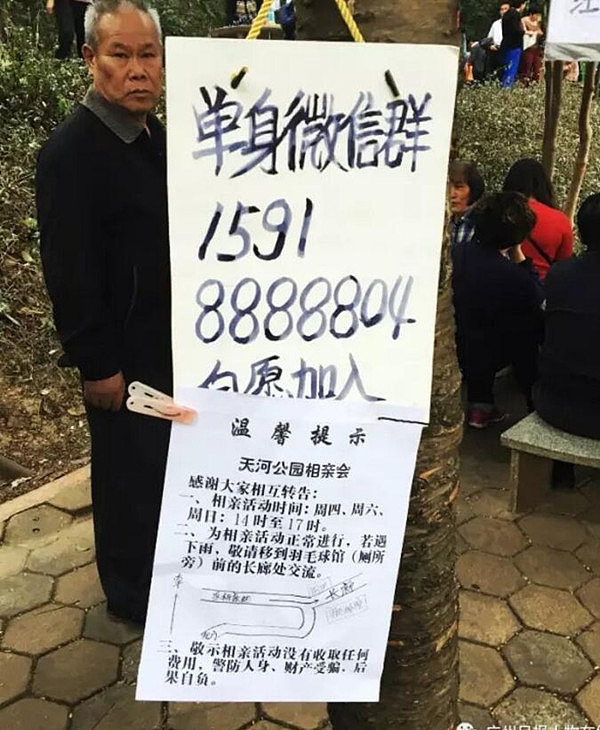 单身微信群
1591
8888804
自愿加入
温馨提示
天河公园相亲会
感谢大家相互转告:
一、相亲活动时间:周四、周六、
周日:14时至17时。
二、为相亲活动正常进行,若遇
下雨,敬请移到羽毛球馆(厕所
旁)前的长廊处交流。
长廊
北门
三、敬示相亲活动没有收取任何
费用,警防人身、财产受骗,后
果自负。